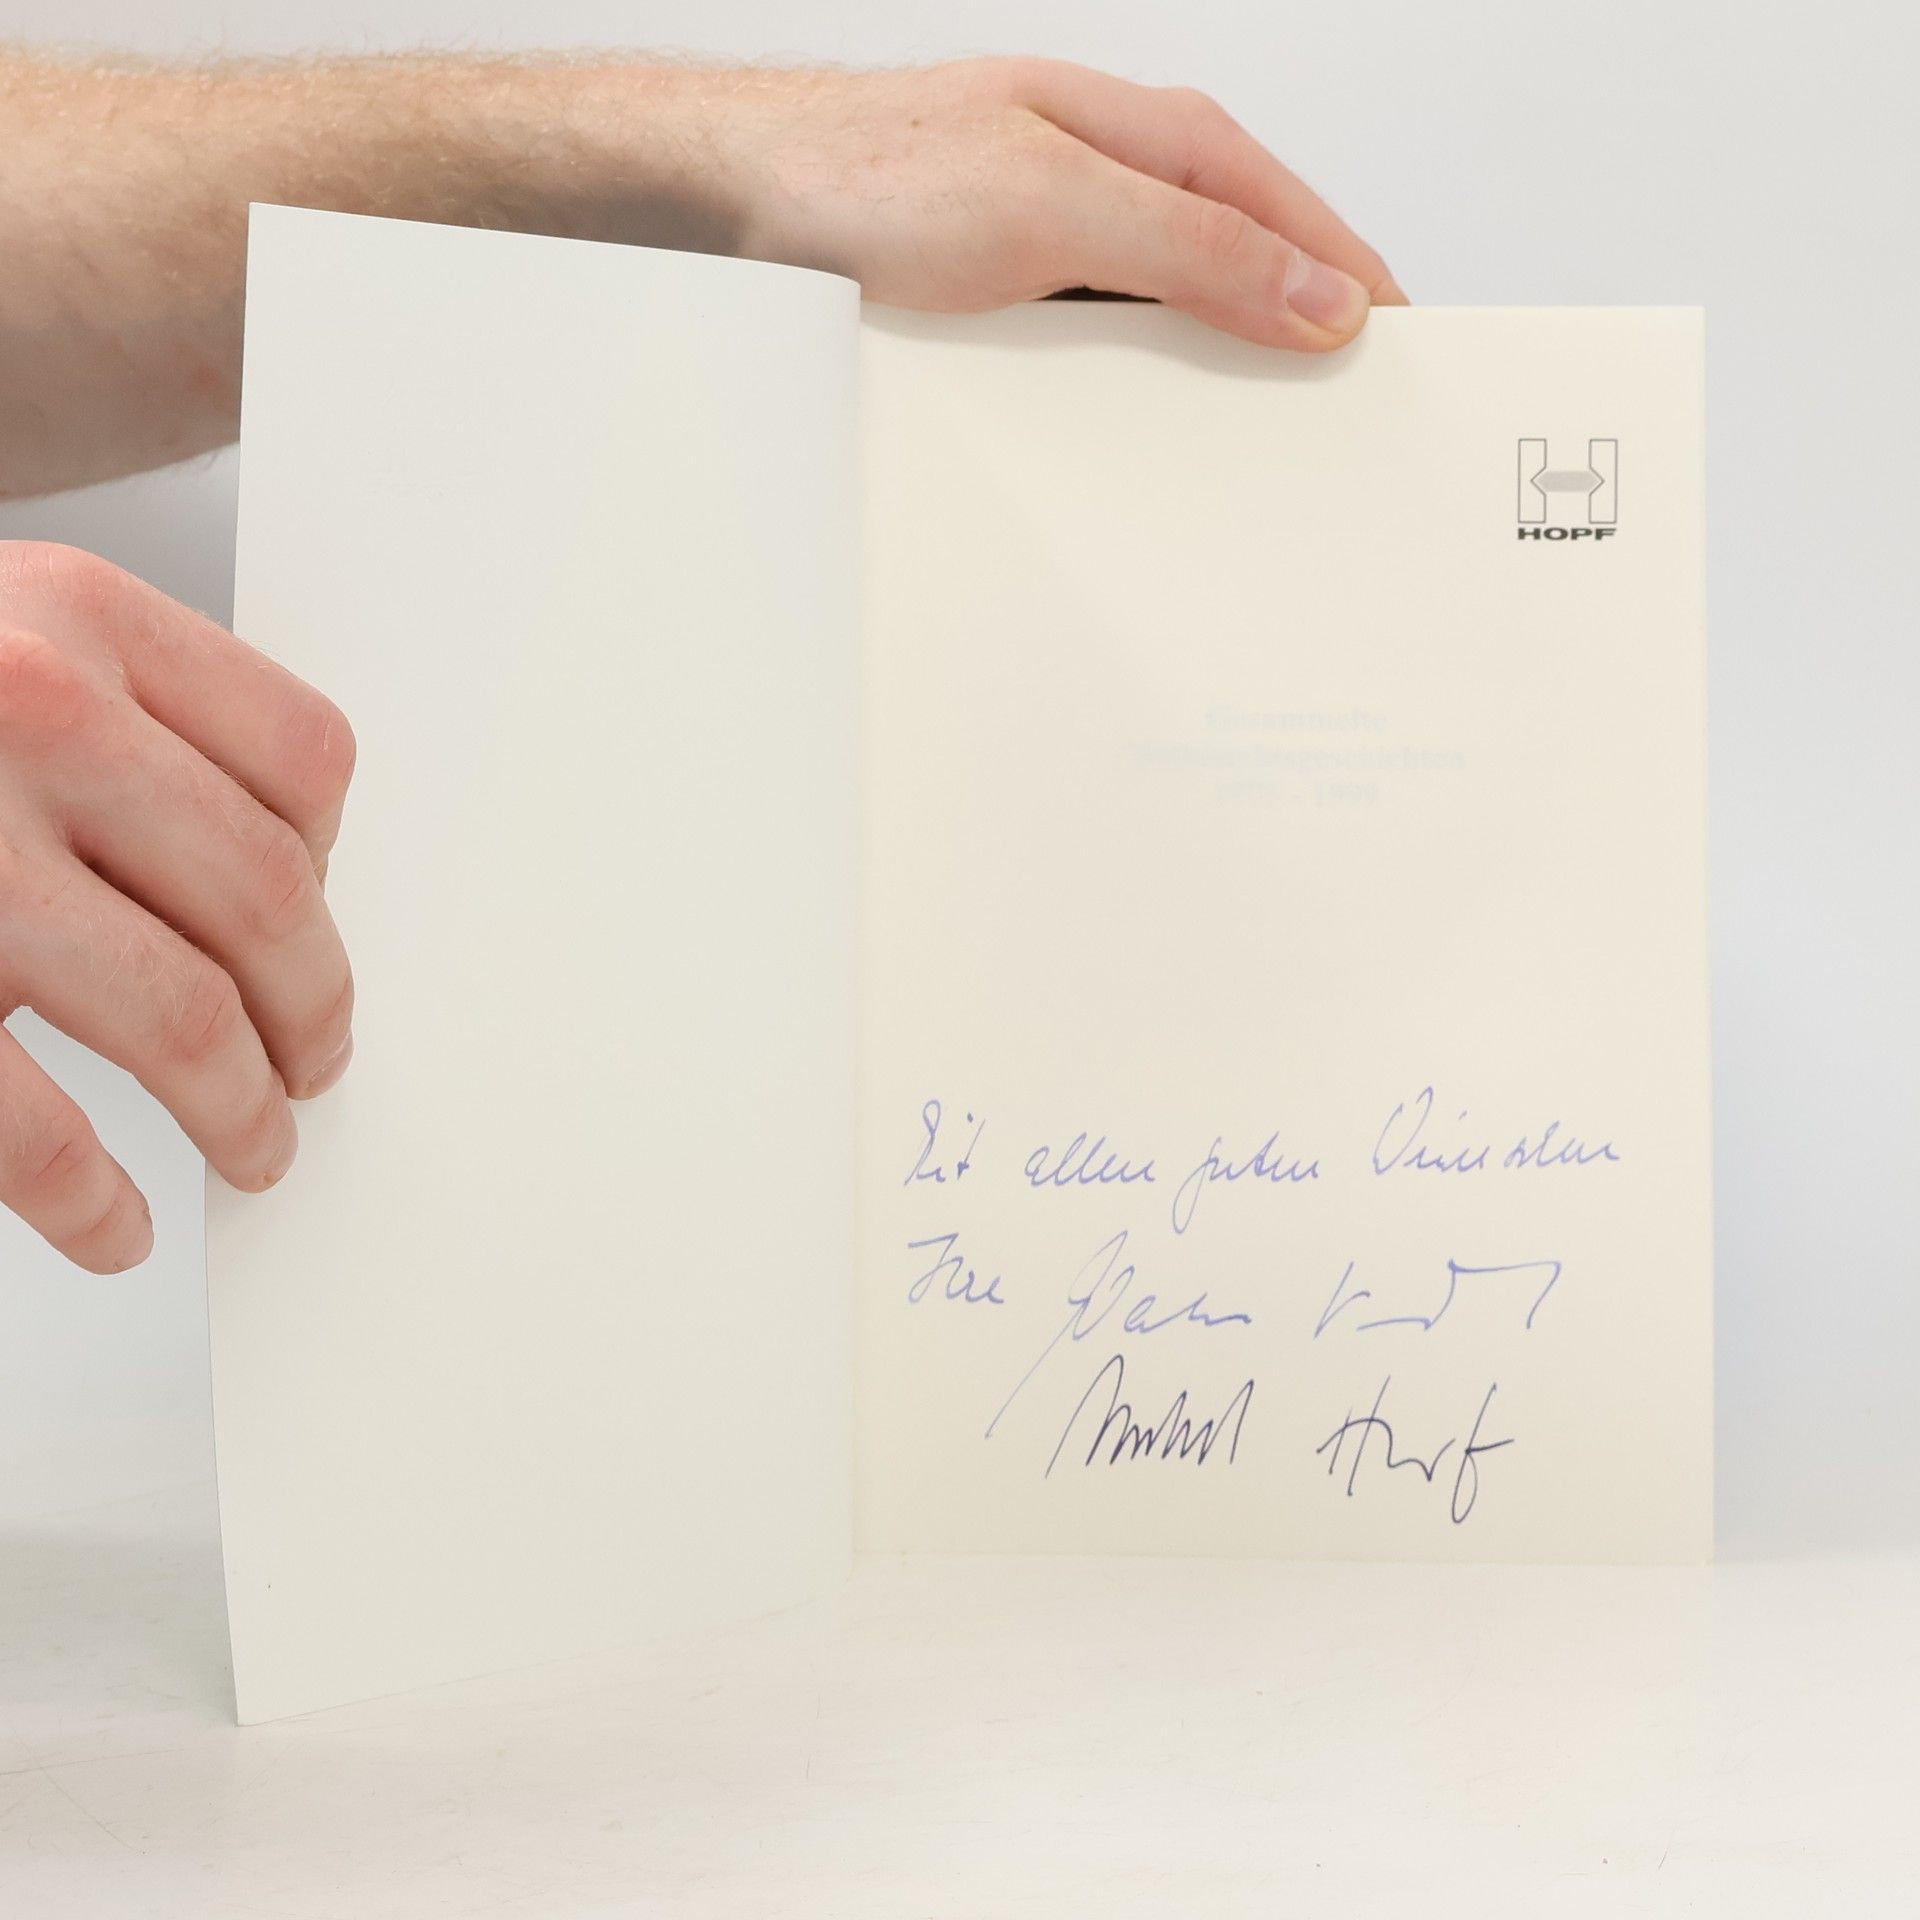 HOPF
Gesammelte
Weihnachtsgeschichten
- 1999
Mit allen guten Wünschen
Ihre
Hopf